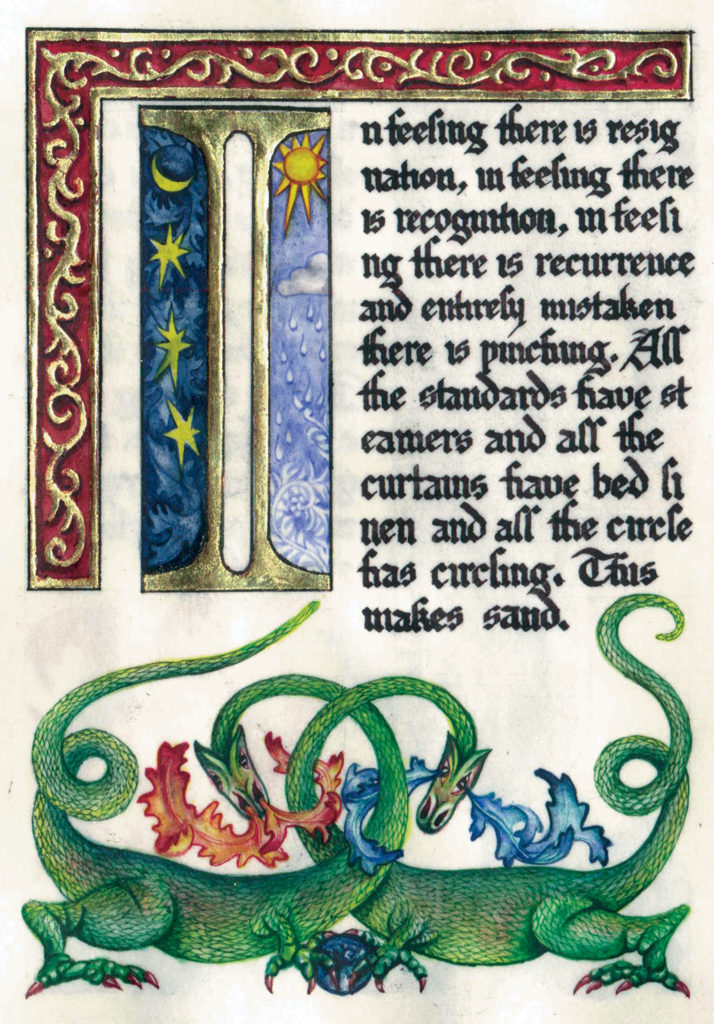 In feeling there is resig
nation, in feeling there
is recognition, in feeli
ng there is recurrence
and entirely mistaken
there is pinching. All
the standards have st
eamers and all the
curtains have bed li
nen and all the circle
has circling. This
makes sand.